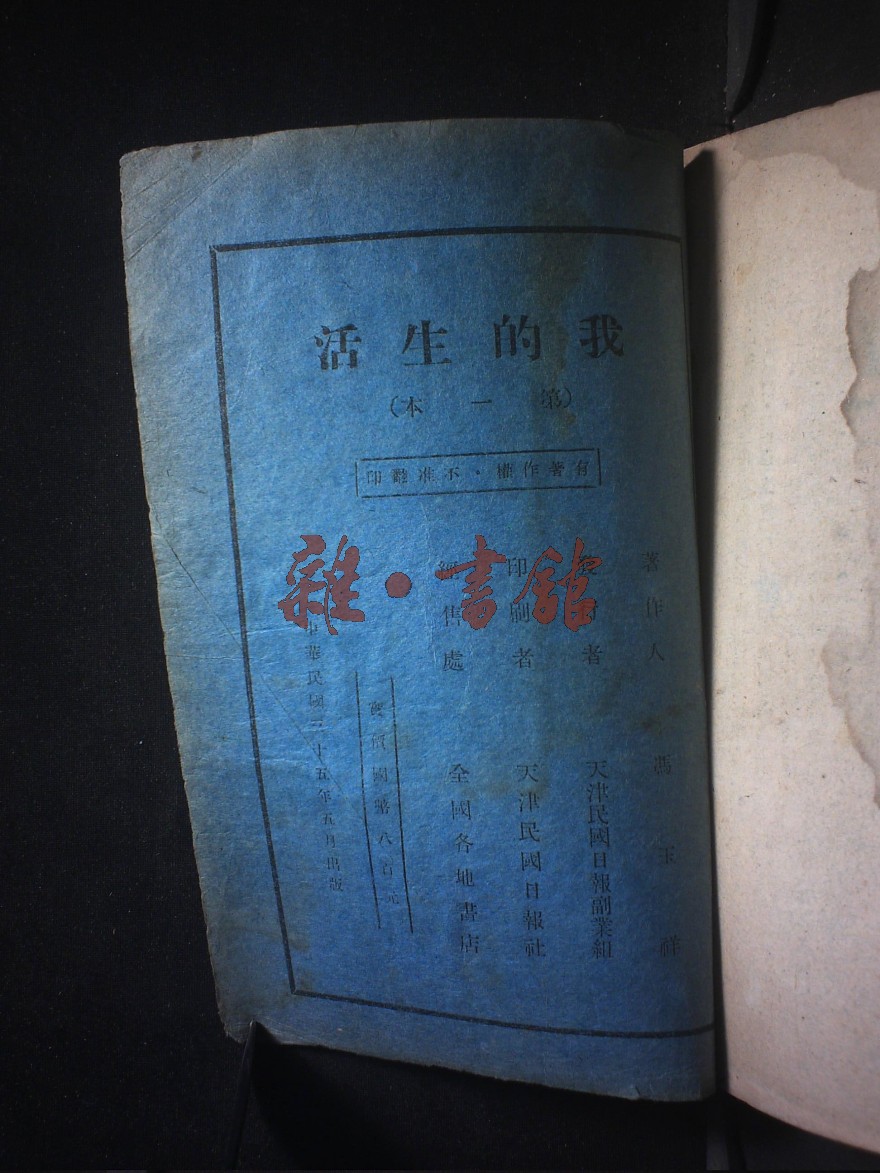 我的生活
（第一本）
有著作權・不准翻印
著作人 馮玉祥
發行者 天津民國日報副業組
印刷者 天津民國日報社
經售處 全國各地書店
實價國幣八百元
中華民國三十五年五月出版
雜・書館